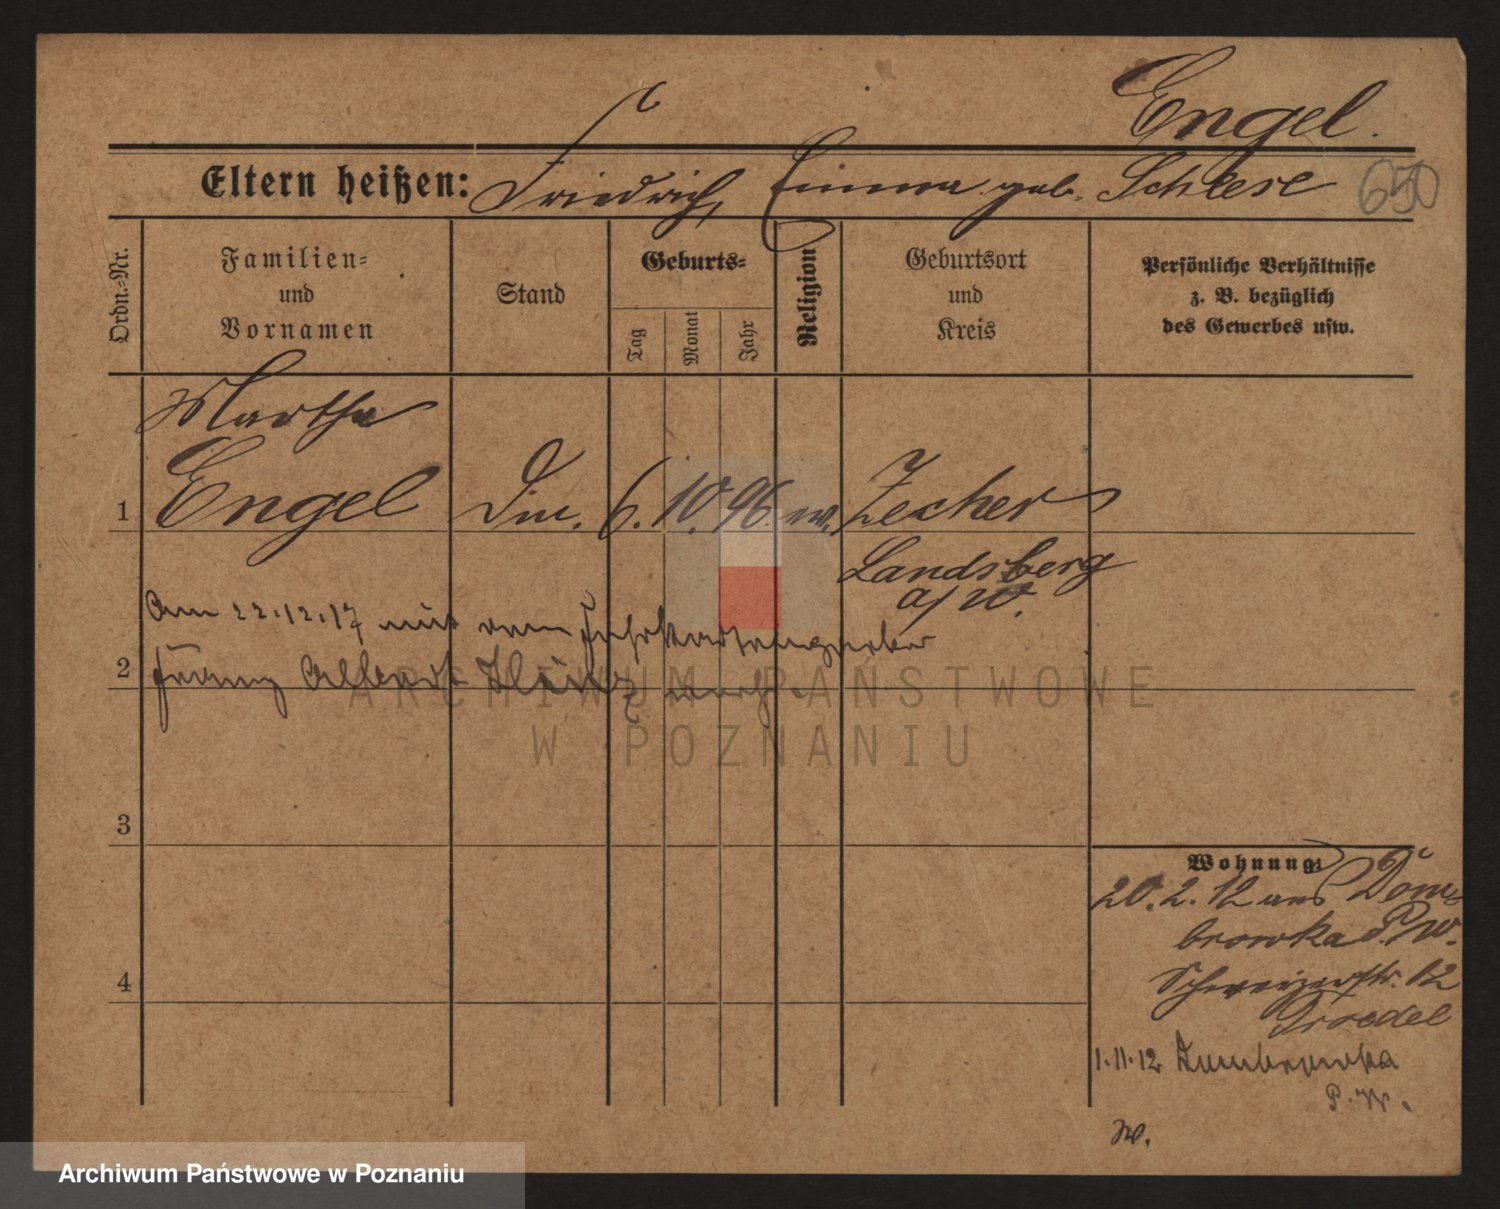 Engel.
Eltern heißen: Friedrich, Emma geb. Schlese
650
Ordn.=Nr.
Familien=
und
Vornamen
Stand
Geburts=
Tag
Monat
Jahr
Religion
Geburtsort
und
Kreis
Persönliche Verhältnisse
z. B. bezüglich
des Gewerbes usw.
Martha
1 Engel Din. 6. 10. 96. ew. Zecher
Landsberg
a/W.
Am 22.12.17 mit dem
2 Franz Albert
3
4
Wohnung
20. 2. 12 aus Dom=
browka P/W.
Schweizerstr. 12
Troedel
1.11.12. Dombrowka
P. W.
W.
ARCHIWUM PAŃSTWOWE
W POZNANIU
Archiwum Państwowe w Poznaniu